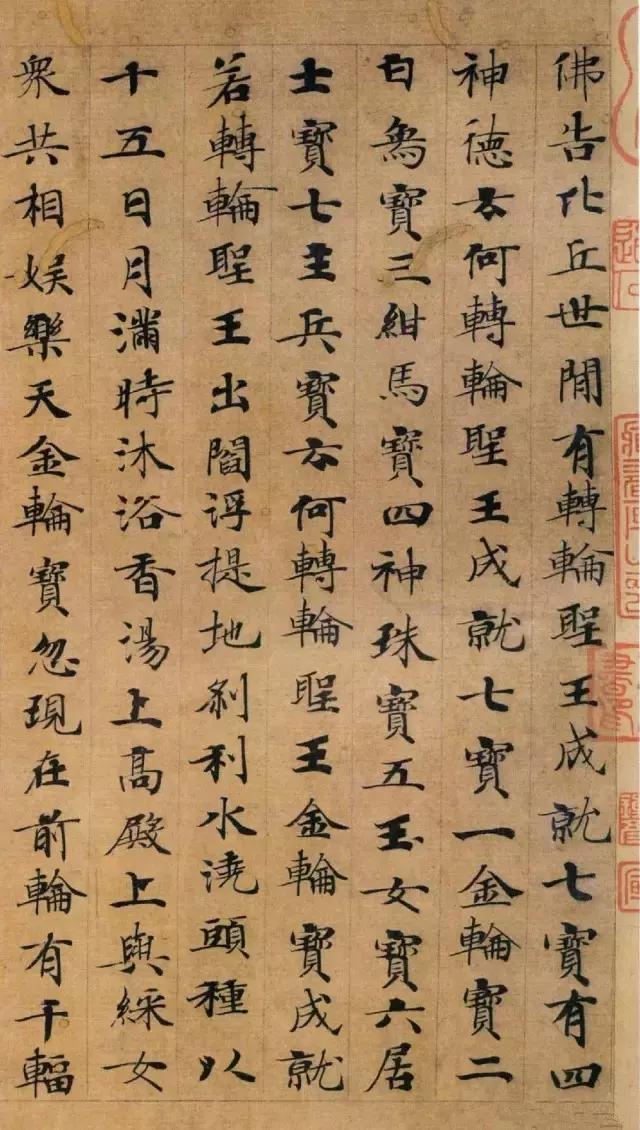 佛告比丘世間有轉輪聖王成就七寶有四
神德云何轉輪聖王成就七寶一金輪寶二
白象寶三紺馬寶四神珠寶五玉女寶六居
士寶七主兵寶云何轉輪聖王金輪寶成就
若轉輪聖王出閻浮提地刹利水澆頭種以
十五日月滿時沐浴香湯上高殿上與綵女
衆共相娱樂天金輪寶忽現在前輪有千輻